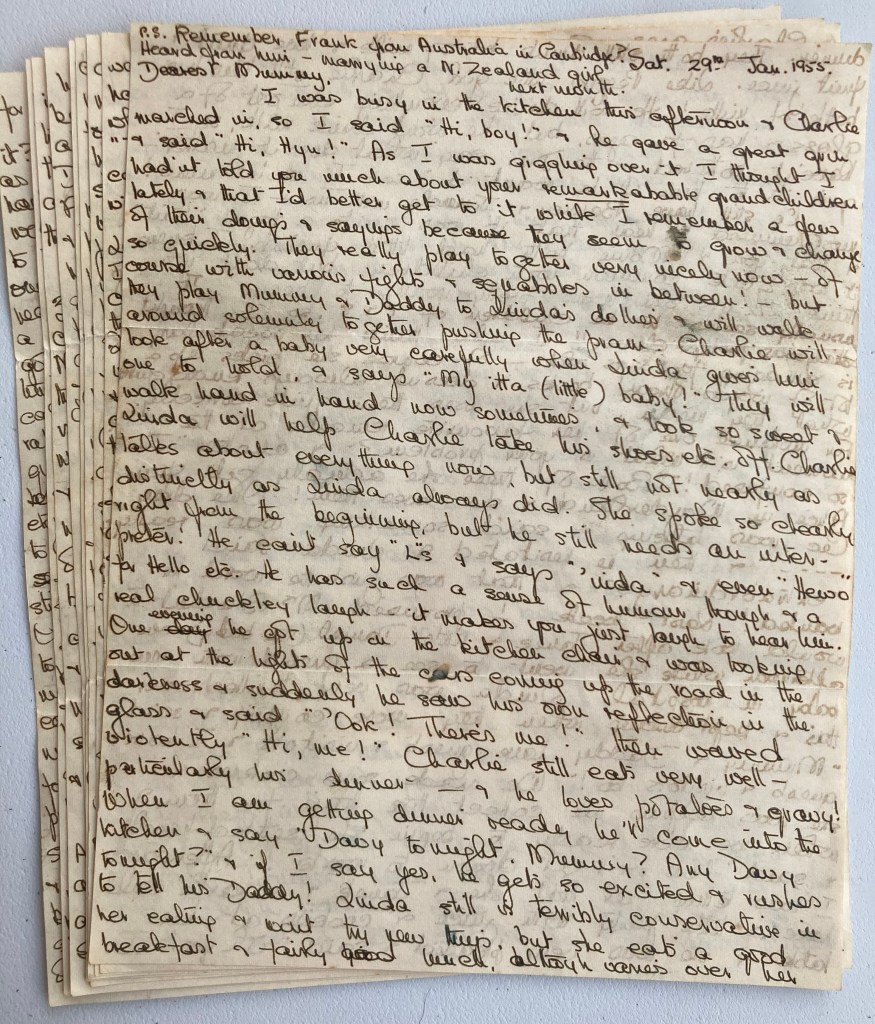 P.S. Remember Frank from Australia in Cambridge?
Heard from him – marrying a N. Zealand girl
next month.
Sat. 29th Jan. 1955.
Dearest Mummy,
I was busy in the kitchen this afternoon & Charlie
marched in, so I said "Hi, boy!" & he gave a great grin
& said "Hi, Hyu!" As I was giggling over it I thought I
hadn't told you much about your remarkabable grandchildren
lately & that I'd better get to it while I remember a few
of their doings & sayings because they seem to grow & change
so quickly. They really play together very nicely now – of
course with various fights & squabbles in between! – but
they play Mummy & Daddy to Linda's dollies & will walk
around solemnly together pushing the pram. Charlie will
look after a baby very carefully when Linda gives him
one to hold, & says "My itta (little) baby!" They will
walk hand in hand now sometimes, & look so sweet &
Linda will help Charlie take his shoes etc. off. Charlie
talks about everything now, but still not nearly as
distinctly as Linda always did. She spoke so clearly
right from the beginning, but he still needs an inter-
preter! He can't say "L"s & says "'inda" & even "Hewo"
for Hello etc. He has such a sense of humour though & a
real chuckley laugh – it makes you just laugh to hear him.
One evening he got up on the kitchen chair & was looking
out at the lights of the cars coming up the road in the
darkness & suddenly he saw his own reflection in the
glass & said "'Ook! There's me!" then waved
violently "Hi, me!" Charlie still eats very well –
particularly his dinner – & he loves potatoes & gravy!
When I am getting dinner ready he'll come into the
kitchen & say "Davy tonight, Mummy? Any Davy
tonight?" & if I say yes, he gets so excited & rushes
to tell his Daddy! Linda still is terribly conservative in
her eating & won't try new things, but she eats a good
breakfast & fairly good lunch, although varies over her